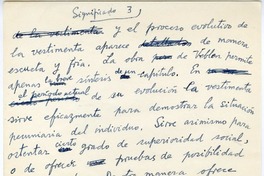 Significado 3)
de la vestimenta y el proceso evolutivo de
la vestimenta aparece de manera
escueta y fría. La obra de Veblen permite
apenas la breve síntesis de un capítulo. En
el período actual de su evolución la vestimenta
sirve eficazmente para demostrar la situación
pecuniaria del individuo. Sirve asimismo para
ostentar cierto grado de superioridad social,
o de ofrecer pruebas de posibilidad
manera ofrece